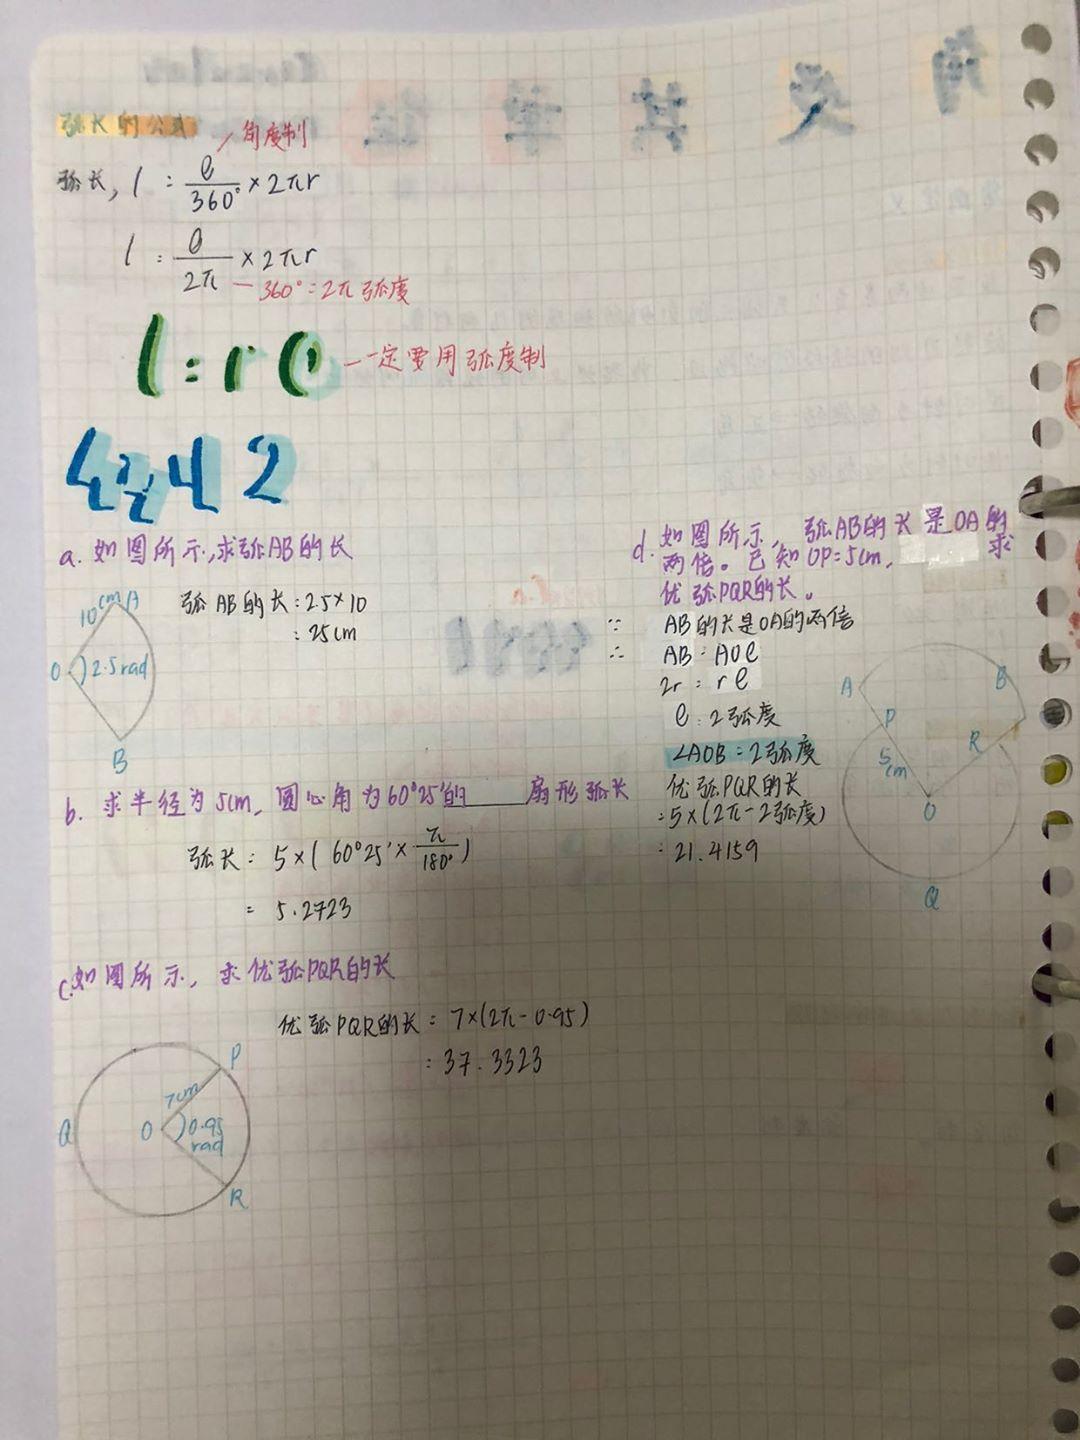 弧长的公式
角度制
弧长, l = θ/360° × 2πr
l = θ/2π × 2πr
360° = 2π弧度
l = rθ
一定要用弧度制
练习2
a. 如图所示,求弧AB的长
弧AB的长 = 2.5×10
= 25cm
10cm A
O 2.5rad
B
b. 求半径为5cm, 圆心角为60°25'的 扇形弧长
弧长 = 5×(60°25'× π/180°)
= 5.2723
c. 如图所示, 求优弧PQR的长
优弧PQR的长 = 7×(2π-0.95)
= 37.3323
P
7cm
Q O 0.95
rad
R
d. 如图所示, 弧AB的长是OA的
两倍。已知OP=5cm, 求
优弧PQR的长。
∵ AB的长是OA的两倍
∴ AB = AOθ
2r = rθ
θ = 2弧度
∠AOB = 2弧度
优弧PQR的长
= 5×(2π-2弧度)
= 21.4159
A B
P R
5cm
O
Q